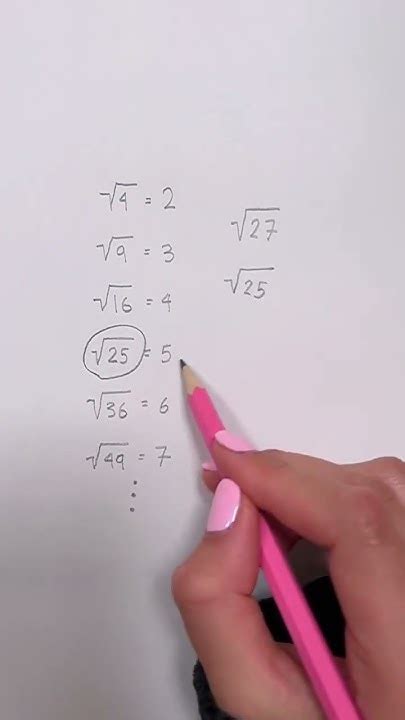 √4 = 2
√9 = 3
√16 = 4
√25 = 5
√36 = 6
√49 = 7
⋮
√27
√25